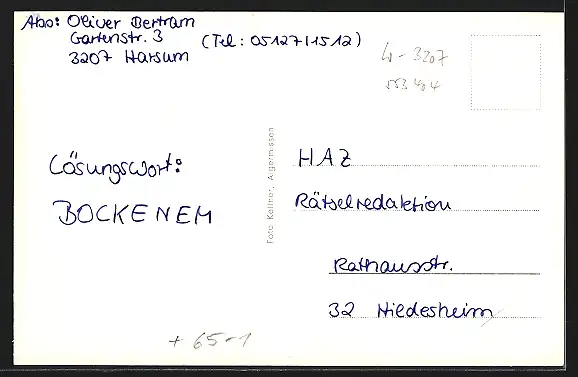 Abs: Oliver Bertram
Gartenstr. 3 (Tel: 05127/1512)
3207 Harsum
W-3207
553 404
Lösungswort:
BOCKENEM
Foto Kellner, Algermissen
HAZ
Rätselredaktion
Rathausstr.
32 Hildesheim
+ 65-1